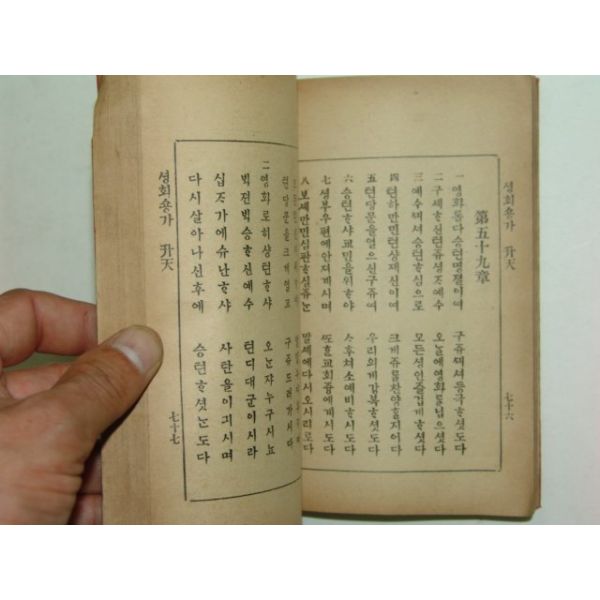 셩회숑가 升天 七十六
第五十九章
一 영화롭다승텬명졀이여 구쥬ᄭᅴ셔등극ᄒᆞ셧도다
二 구셰ᄒᆞ신텬쥬셩ᄌᆞ예수 오ᄂᆞᆯ에영화를닙으셧다
三 예수ᄭᅴ셔승텬ᄒᆞ심으로 모든셩인즐겁게ᄒᆞ셧다
四 텬하만민텬샹재신이여 크게쥬를찬양ᄒᆞᆯ지어다
五 텬당문을열으신구쥬여 우리의게강복ᄒᆞ셧도다
六 승텬ᄒᆞ샤교민을위ᄒᆞ야 ᄉᆞ후쳐소예비ᄒᆞ시도다
七 셩부우편에안져계시며 ᄯᅩᄒᆞᆫ교회즁에계시도다
八 보셰만민심판ᄒᆞ실쥬ᄂᆞᆫ 말셰에다시오시리로다
텬당문을크게열고 구쥬드러가시다
二 영화로히샹텬ᄒᆞ샤 오ᄂᆞᆫ쟈누구시뇨
빅젼빅승ᄒᆞ신예수 텬디대군이시라
십ᄌᆞ가에슈난ᄒᆞ샤 사탄을이긔시며
다시살아나신후에 승텬ᄒᆞ셧ᄂᆞᆫ도다
셩회숑가 升天 七十七